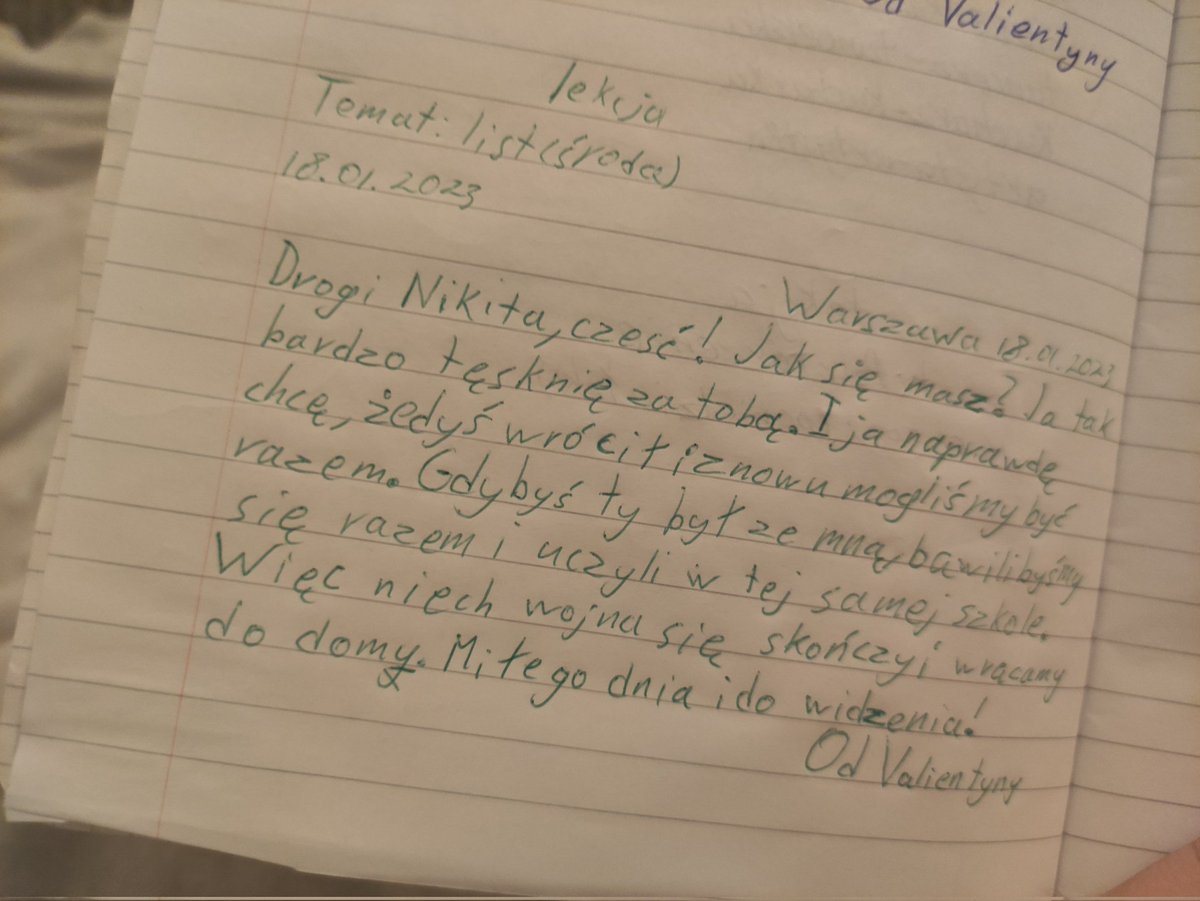 Od Valientyny
lekcja
Temat: list (środa)
18.01.2023
Warszawa 18.01.2023
Drogi Nikita, cześć! Jak się masz? Ja tak
bardzo tęsknię za tobą. I ja naprawdę
chcę, żedyś wrócił i znowu mogliśmy być
razem. Gdybyś ty był ze mną, bawilibyśmy
się razem i uczyli w tej samej szkole.
Więc niech wojna się skończy i wrącamy
do domy. Miłego dnia i do widzenia!
Od Valientyny